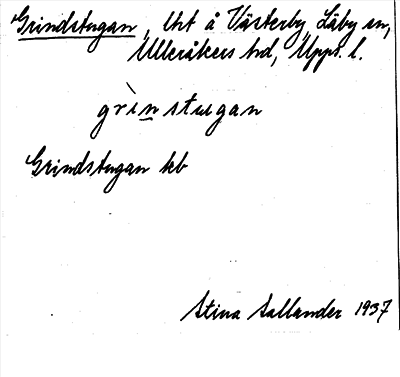 Grindstugan, lht å Västerby Läby sn,
Ulleråkers hd, Upps. l.
grìnstugan
Grindstugan kb
Stina Sallander 1937